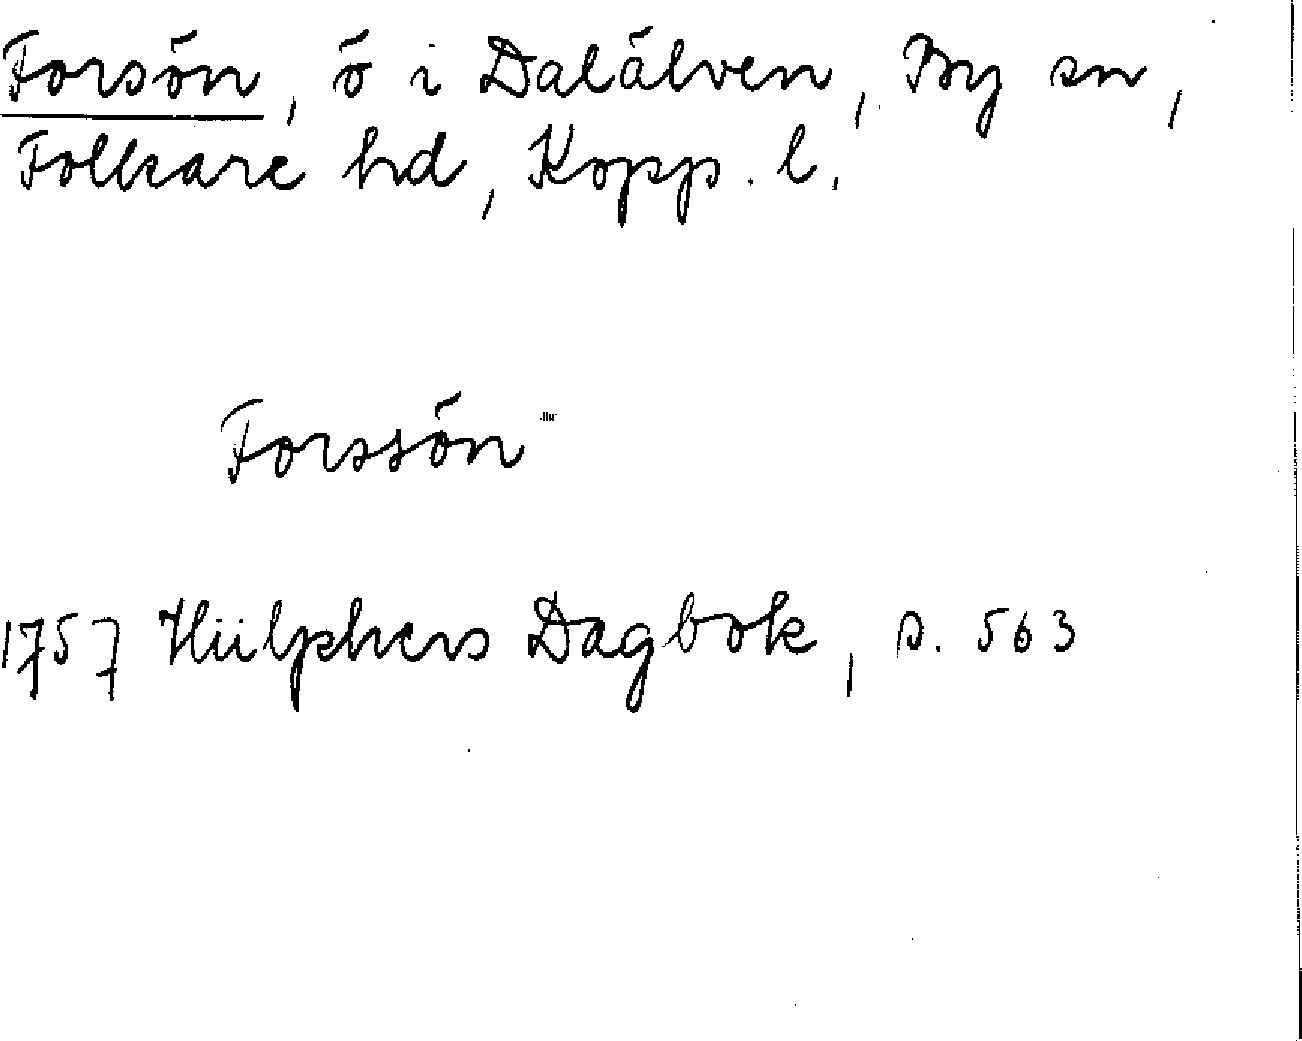 Forsön, ö i Dalälven, By sn,
Folkare hd, Kopp. l.
Forssön
1757 Hülphers Dagbok, s. 563